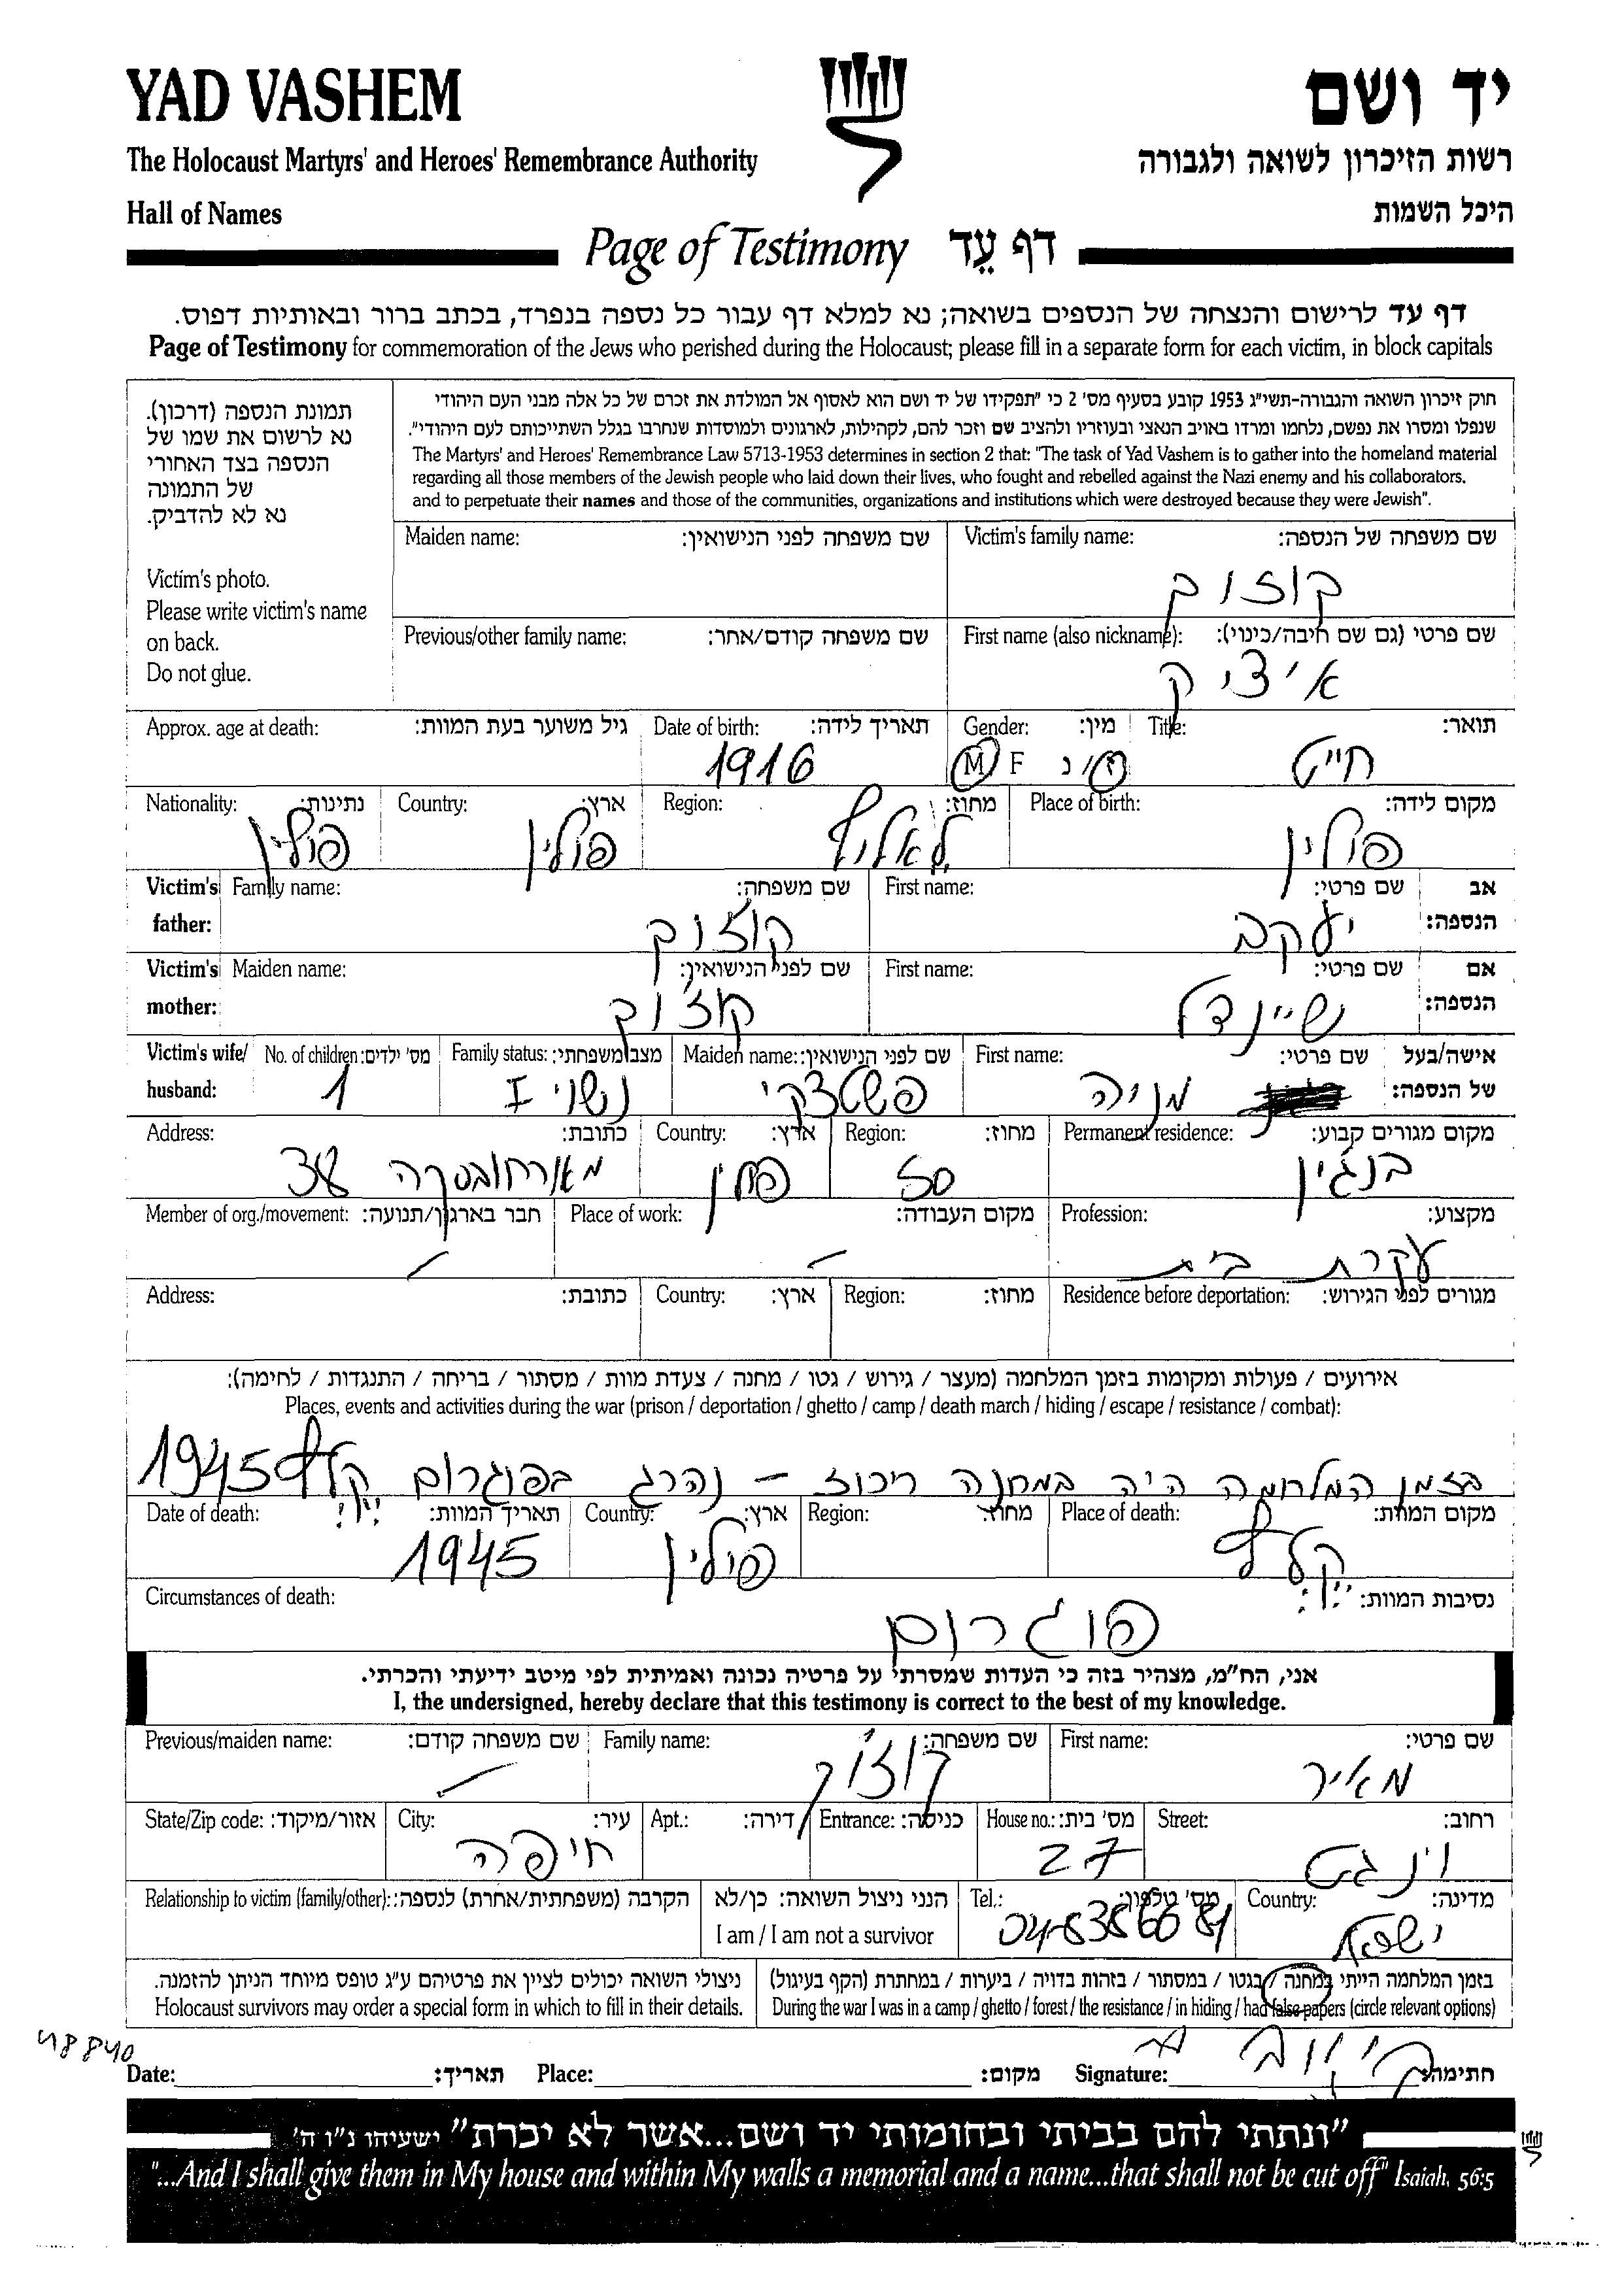 YAD VASHEM יד ושם
The Holocaust Martyrs' and Heroes' Remembrance Authority רשות הזיכרון לשואה ולגבורה
Hall of Names היכל השמות
Page of Testimony דף עֵד
דף עד לרישום והנצחה של הנספים בשואה; נא למלא דף עבור כל נספה בנפרד, בכתב ברור ובאותיות דפוס.
Page of Testimony for commemoration of the Jews who perished during the Holocaust; please fill in a separate form for each victim, in block capitals
תמונת הנספה (דרכון).
נא לרשום את שמו של
הנספה בצד האחורי
של התמונה
נא לא להדביק.
Victim's photo.
Please write victim's name
on back.
Do not glue.
חוק זיכרון השואה והגבורה-תשי"ג 1953 קובע בסעיף מס' 2 כי "תפקידו של יד ושם הוא לאסוף אל המולדת את זכרם של כל אלה מבני העם היהודי
שנפלו ומסרו את נפשם, נלחמו ומרדו באויב הנאצי ובעוזריו ולהציב שם וזכר להם, לקהילות, לארגונים ולמוסדות שנחרבו בגלל השתייכותם לעם היהודי".
The Martyrs' and Heroes' Remembrance Law 5713-1953 determines in section 2 that: "The task of Yad Vashem is to gather into the homeland material
regarding all those members of the Jewish people who laid down their lives, who fought and rebelled against the Nazi enemy and his collaborators,
and to perpetuate their names and those of the communities, organizations and institutions which were destroyed because they were Jewish".
Maiden name: שם משפחה לפני הנישואין: Victim's family name: שם משפחה של הנספה:
קוזוק
Previous/other family name: שם משפחה קודם/אחר: First name (also nickname): שם פרטי (גם שם חיבה/כינוי):
איציק
Approx. age at death: גיל משוער בעת המוות: Date of birth: תאריך לידה: Gender: מין: Title: תואר:
1916 M F ז/נ חייט
Nationality: נתינות: Country: ארץ: Region: מחוז: Place of birth: מקום לידה:
פולין פולין פולין
Victim's father: Family name: שם משפחה: First name: שם פרטי: אב הנספה:
קוזוק יעקב
Victim's mother: Maiden name: שם לפני הנישואין: First name: שם פרטי: אם הנספה:
קוזוק שיינדל
Victim's wife/ husband: No. of children: מס' ילדים: Family status: מצב משפחתי: Maiden name: שם לפני הנישואין: First name: שם פרטי: אישה/בעל של הנספה:
1 נשוי I מניה
Address: כתובת: Country: ארץ: Region: מחוז: Permanent residence: מקום מגורים קבוע:
38 פולין בנג'ין
Member of org./movement: חבר בארגון/תנועה: Place of work: מקום העבודה: Profession: מקצוע:
עקרת בית
Address: כתובת: Country: ארץ: Region: מחוז: Residence before deportation: מגורים לפני הגירוש:
אירועים / פעולות ומקומות בזמן המלחמה (מעצר / גירוש / גטו / מחנה / צעדת מוות / מסתור / בריחה / התנגדות / לחימה):
Places, events and activities during the war (prison / deportation / ghetto / camp / death march / hiding / escape / resistance / combat):
בזמן המלחמה היה במחנה ריכוז - נהרג בפוגרום קלץ 1945
Date of death: תאריך המוות: Country: ארץ: Region: מחוז: Place of death: מקום המוות:
1945 פולין קלץ
Circumstances of death: נסיבות המוות:
פוגרום
אני, הח"מ, מצהיר בזה כי העדות שמסרתי על פרטיה נכונה ואמיתית לפי מיטב ידיעתי והכרתי.
I, the undersigned, hereby declare that this testimony is correct to the best of my knowledge.
Previous/maiden name: שם משפחה קודם: Family name: שם משפחה: First name: שם פרטי:
קוזוק מאיר
State/Zip code: אזור/מיקוד: City: עיר: Apt.: דירה: Entrance: כניסה: House no.: מס' בית: Street: רחוב:
חיפה 27 וינגט
Relationship to victim (family/other): הקרבה (משפחתית/אחרת) לנספה: הנני ניצול השואה: כן/לא Tel.: מס' טלפון: Country: מדינה:
I am / I am not a survivor ישראל
ניצולי השואה יכולים לציין את פרטיהם ע"ג טופס מיוחד הניתן להזמנה. בזמן המלחמה הייתי במחנה / בגטו / במסתור / בזהות בדויה / ביערות / במחתרת (הקף בעיגול)
Holocaust survivors may order a special form in which to fill in their details. During the war I was in a camp / ghetto / forest / the resistance / in hiding / had false papers (circle relevant options)
48840
Date: תאריך: Place: מקום: Signature: חתימה:
"ונתתי להם בביתי ובחומותי יד ושם...אשר לא יכרת" ישעיהו נ"ו ה'
"...And I shall give them in My house and within My walls a memorial and a name...that shall not be cut off" Isaiah, 56:5